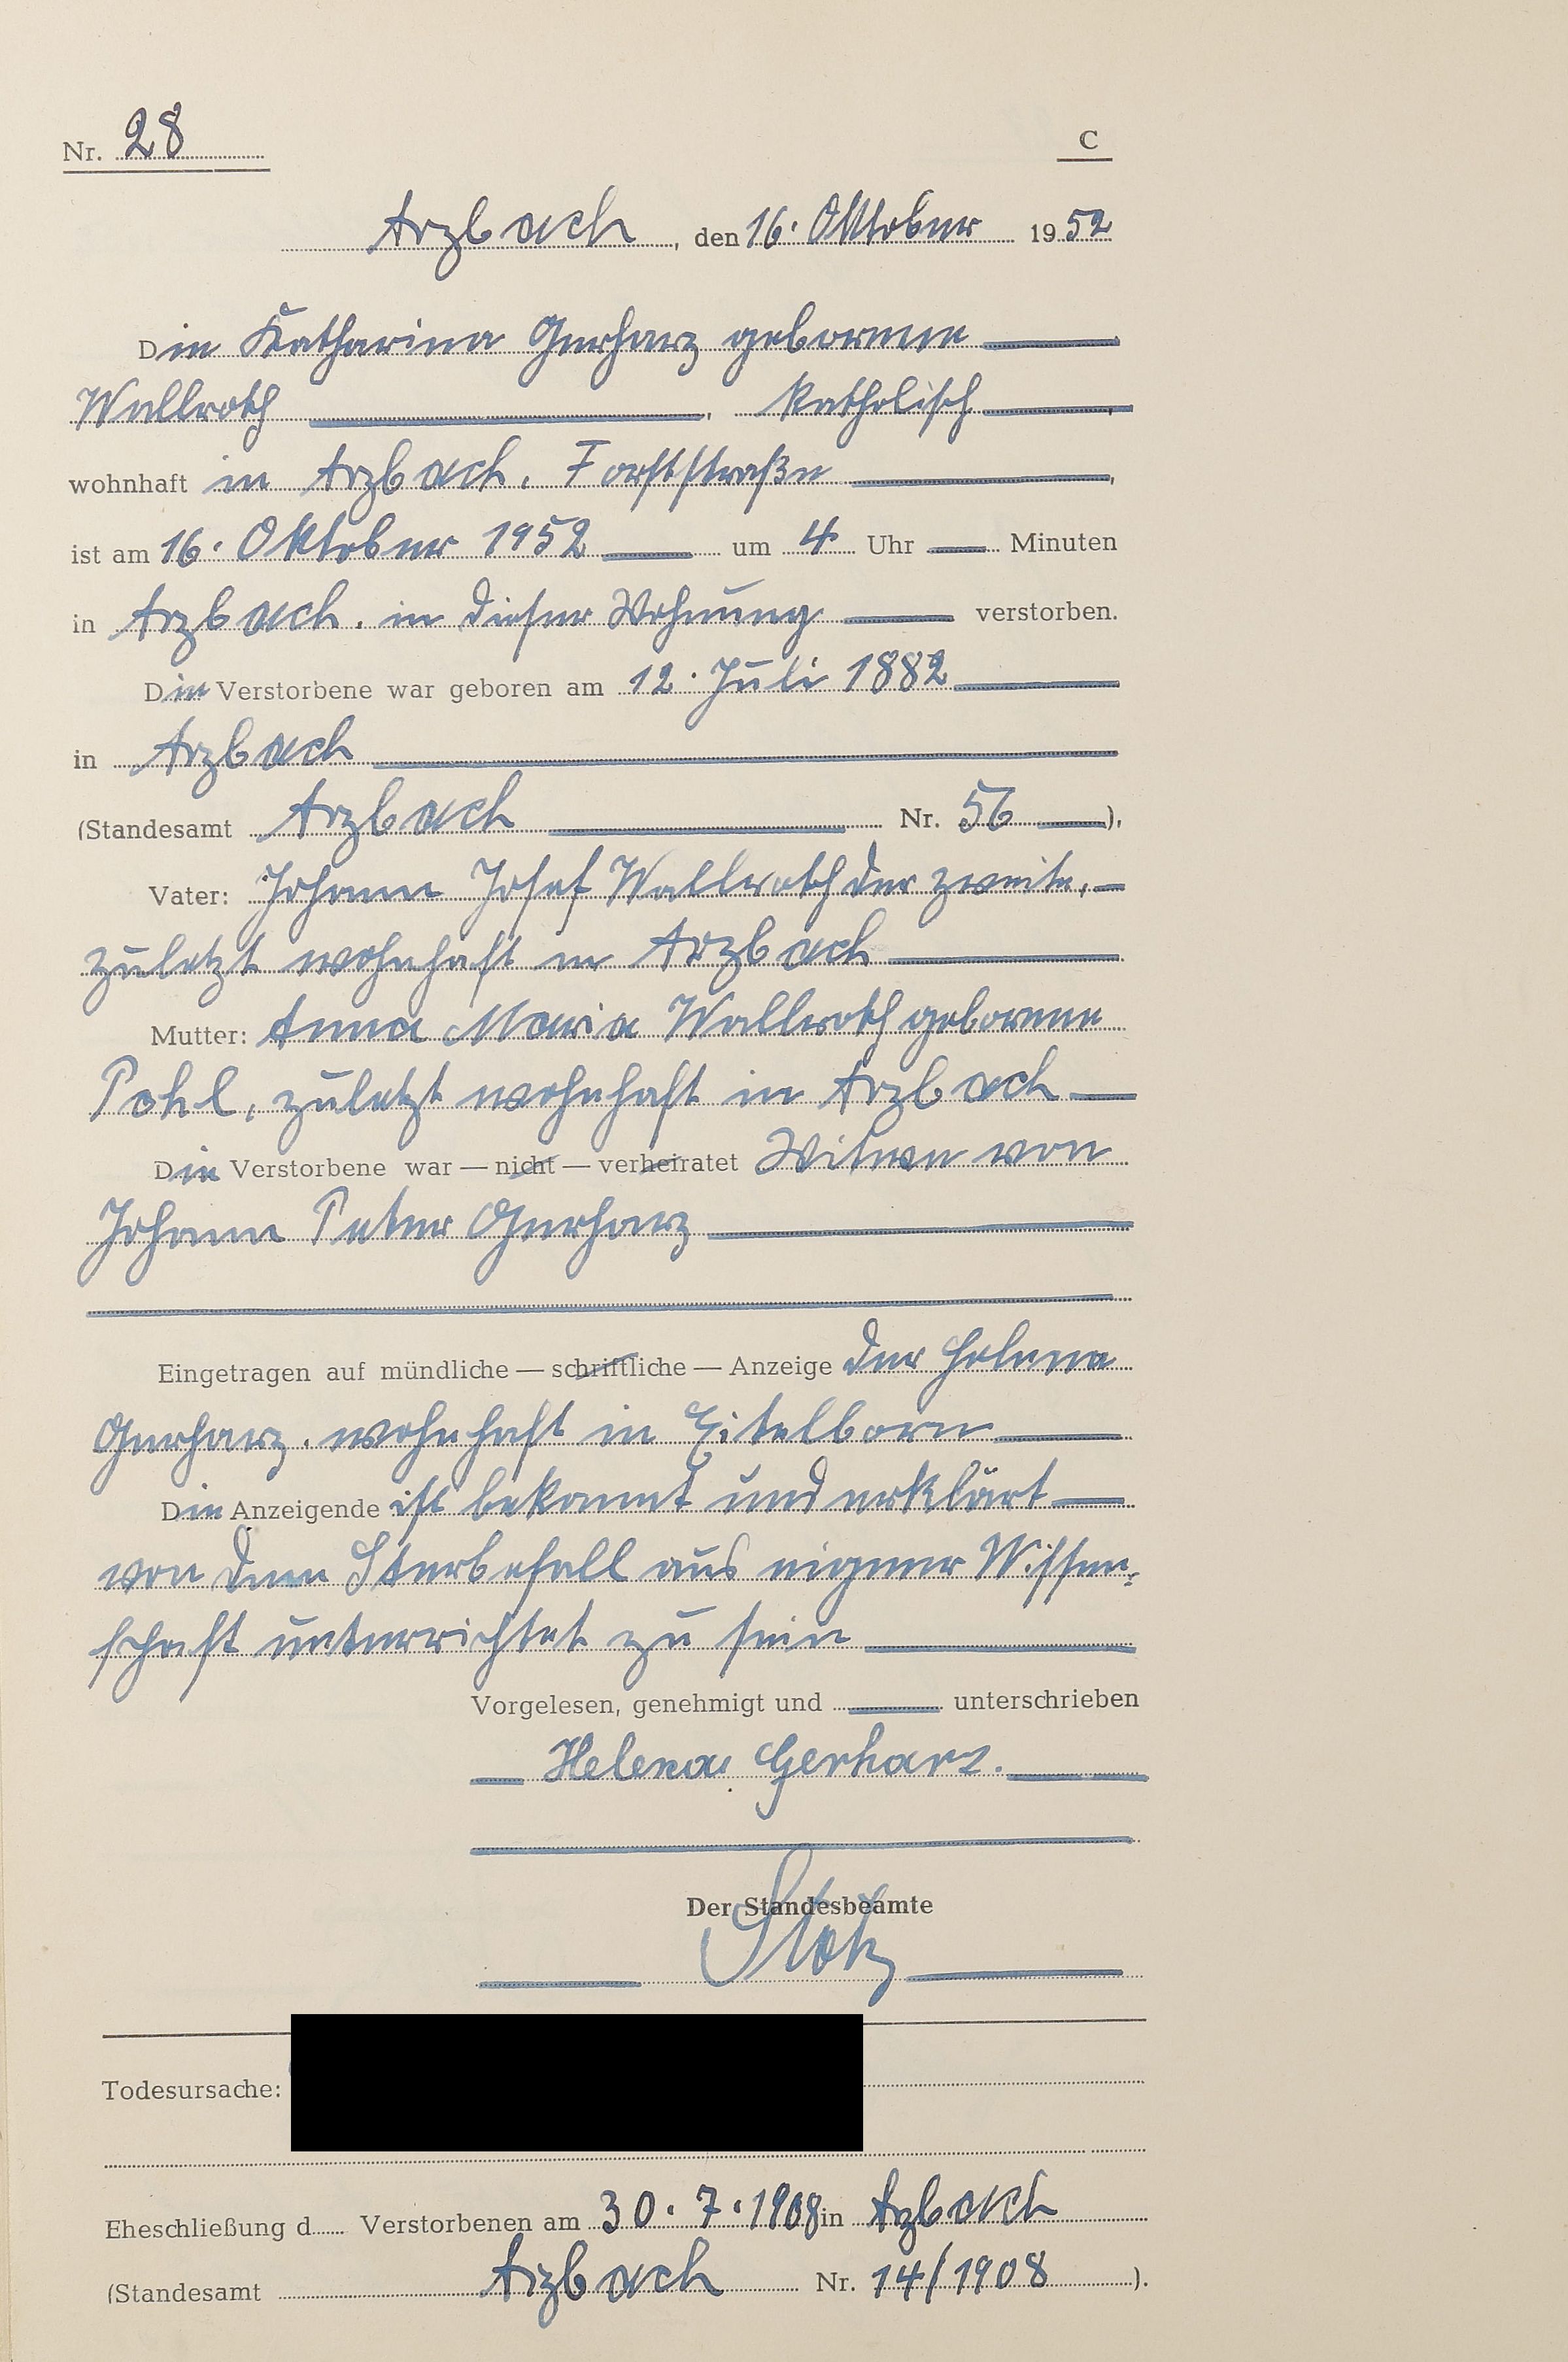 Nr. 28 C
Arzbach, den 16. Oktober 1952
Die Katharina Gerharz geborene
Wallroth, katholisch
wohnhaft in Arzbach, Forststraße
ist am 16. Oktober 1952 um 4 Uhr Minuten
in Arzbach, in dieser Wohnung verstorben.
Die Verstorbene war geboren am 12. Juli 1882
in Arzbach
(Standesamt Arzbach Nr. 56 ),
Vater: Johann Josef Wallroth der zweite,
zuletzt wohnhaft in Arzbach
Mutter: Anna Maria Wallroth geborene
Pohl, zuletzt wohnhaft in Arzbach
Die Verstorbene war — nicht — verheiratet Witwe von
Johann Peter Gerharz
Eingetragen auf mündliche — schriftliche — Anzeige der Helena
Gerharz, wohnhaft in Eitelborn
Die Anzeigende ist bekannt und erklärt
von dem Sterbefall aus eigener Wissen-
schaft unterrichtet zu sein
Vorgelesen, genehmigt und unterschrieben
Helena Gerharz.
Der Standesbeamte
Stotz
Todesursache:
Eheschließung d Verstorbenen am 30.7.1908 in Arzbach
(Standesamt Arzbach Nr. 14/1908 ).